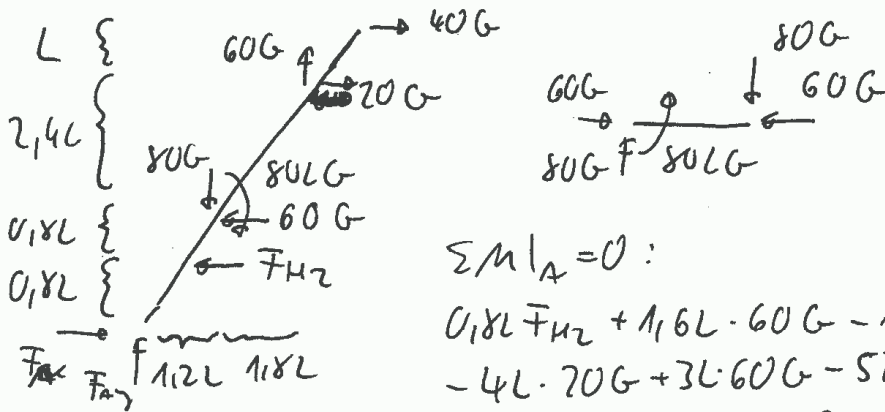 L
40G
60G
20G
2,4L
80G
80LG
60G
0,8L
F_H2
0,8L
F_Ay
1,2L
1,8L
80G
60G
60G
80G
80LG
ΣM|_A = 0 :
0,8L F_H2 + 1,6L · 60G -
- 4L · 20G + 3L · 60G - 5